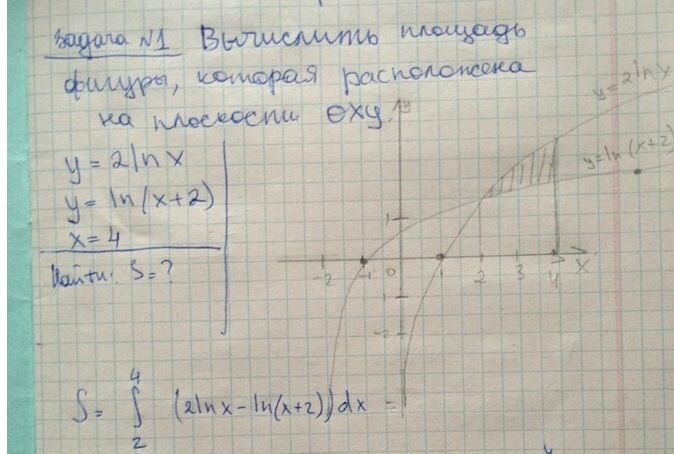 Задача №1 Вычислить площадь
фигуры, которая расположена
на плоскости OXY.
y = 2lnx
y = ln(x+2)
x = 4
Найти: S = ?
y
y=2lnx
y=ln(x+2)
1
-2 -1 0 1 2 3 4 X
-1
-2
S = ∫₂⁴ (2lnx - ln(x+2))dx =